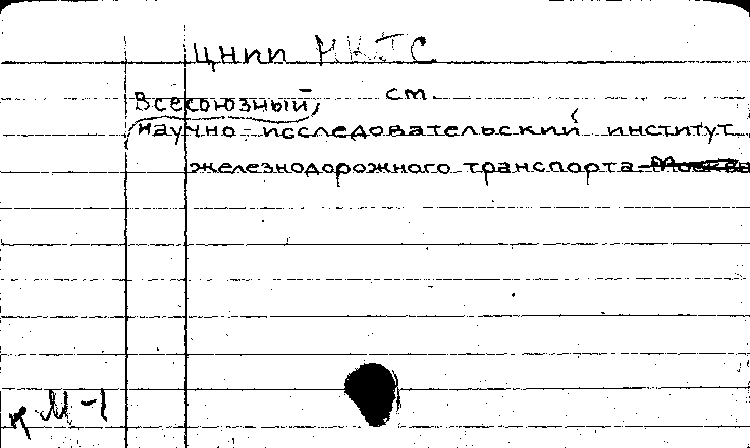 ЦНИИ МКПС
см.
Всесоюзный
научно-исследовательский институт
железнодорожного транспорта
М-1